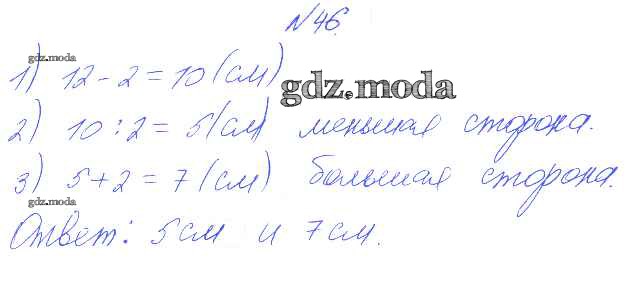 №46.
gdz.moda
1) 12 - 2 = 10 (см)
gdz.moda
2) 10 : 2 = 5 (см) меньшая сторона.
3) 5 + 2 = 7 (см) большая сторона.
gdz.moda
Ответ: 5 см и 7 см.